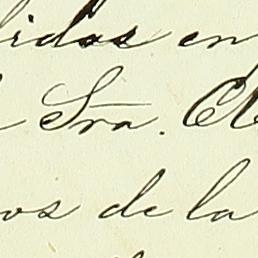 idas en
Sra. Cl
os de la